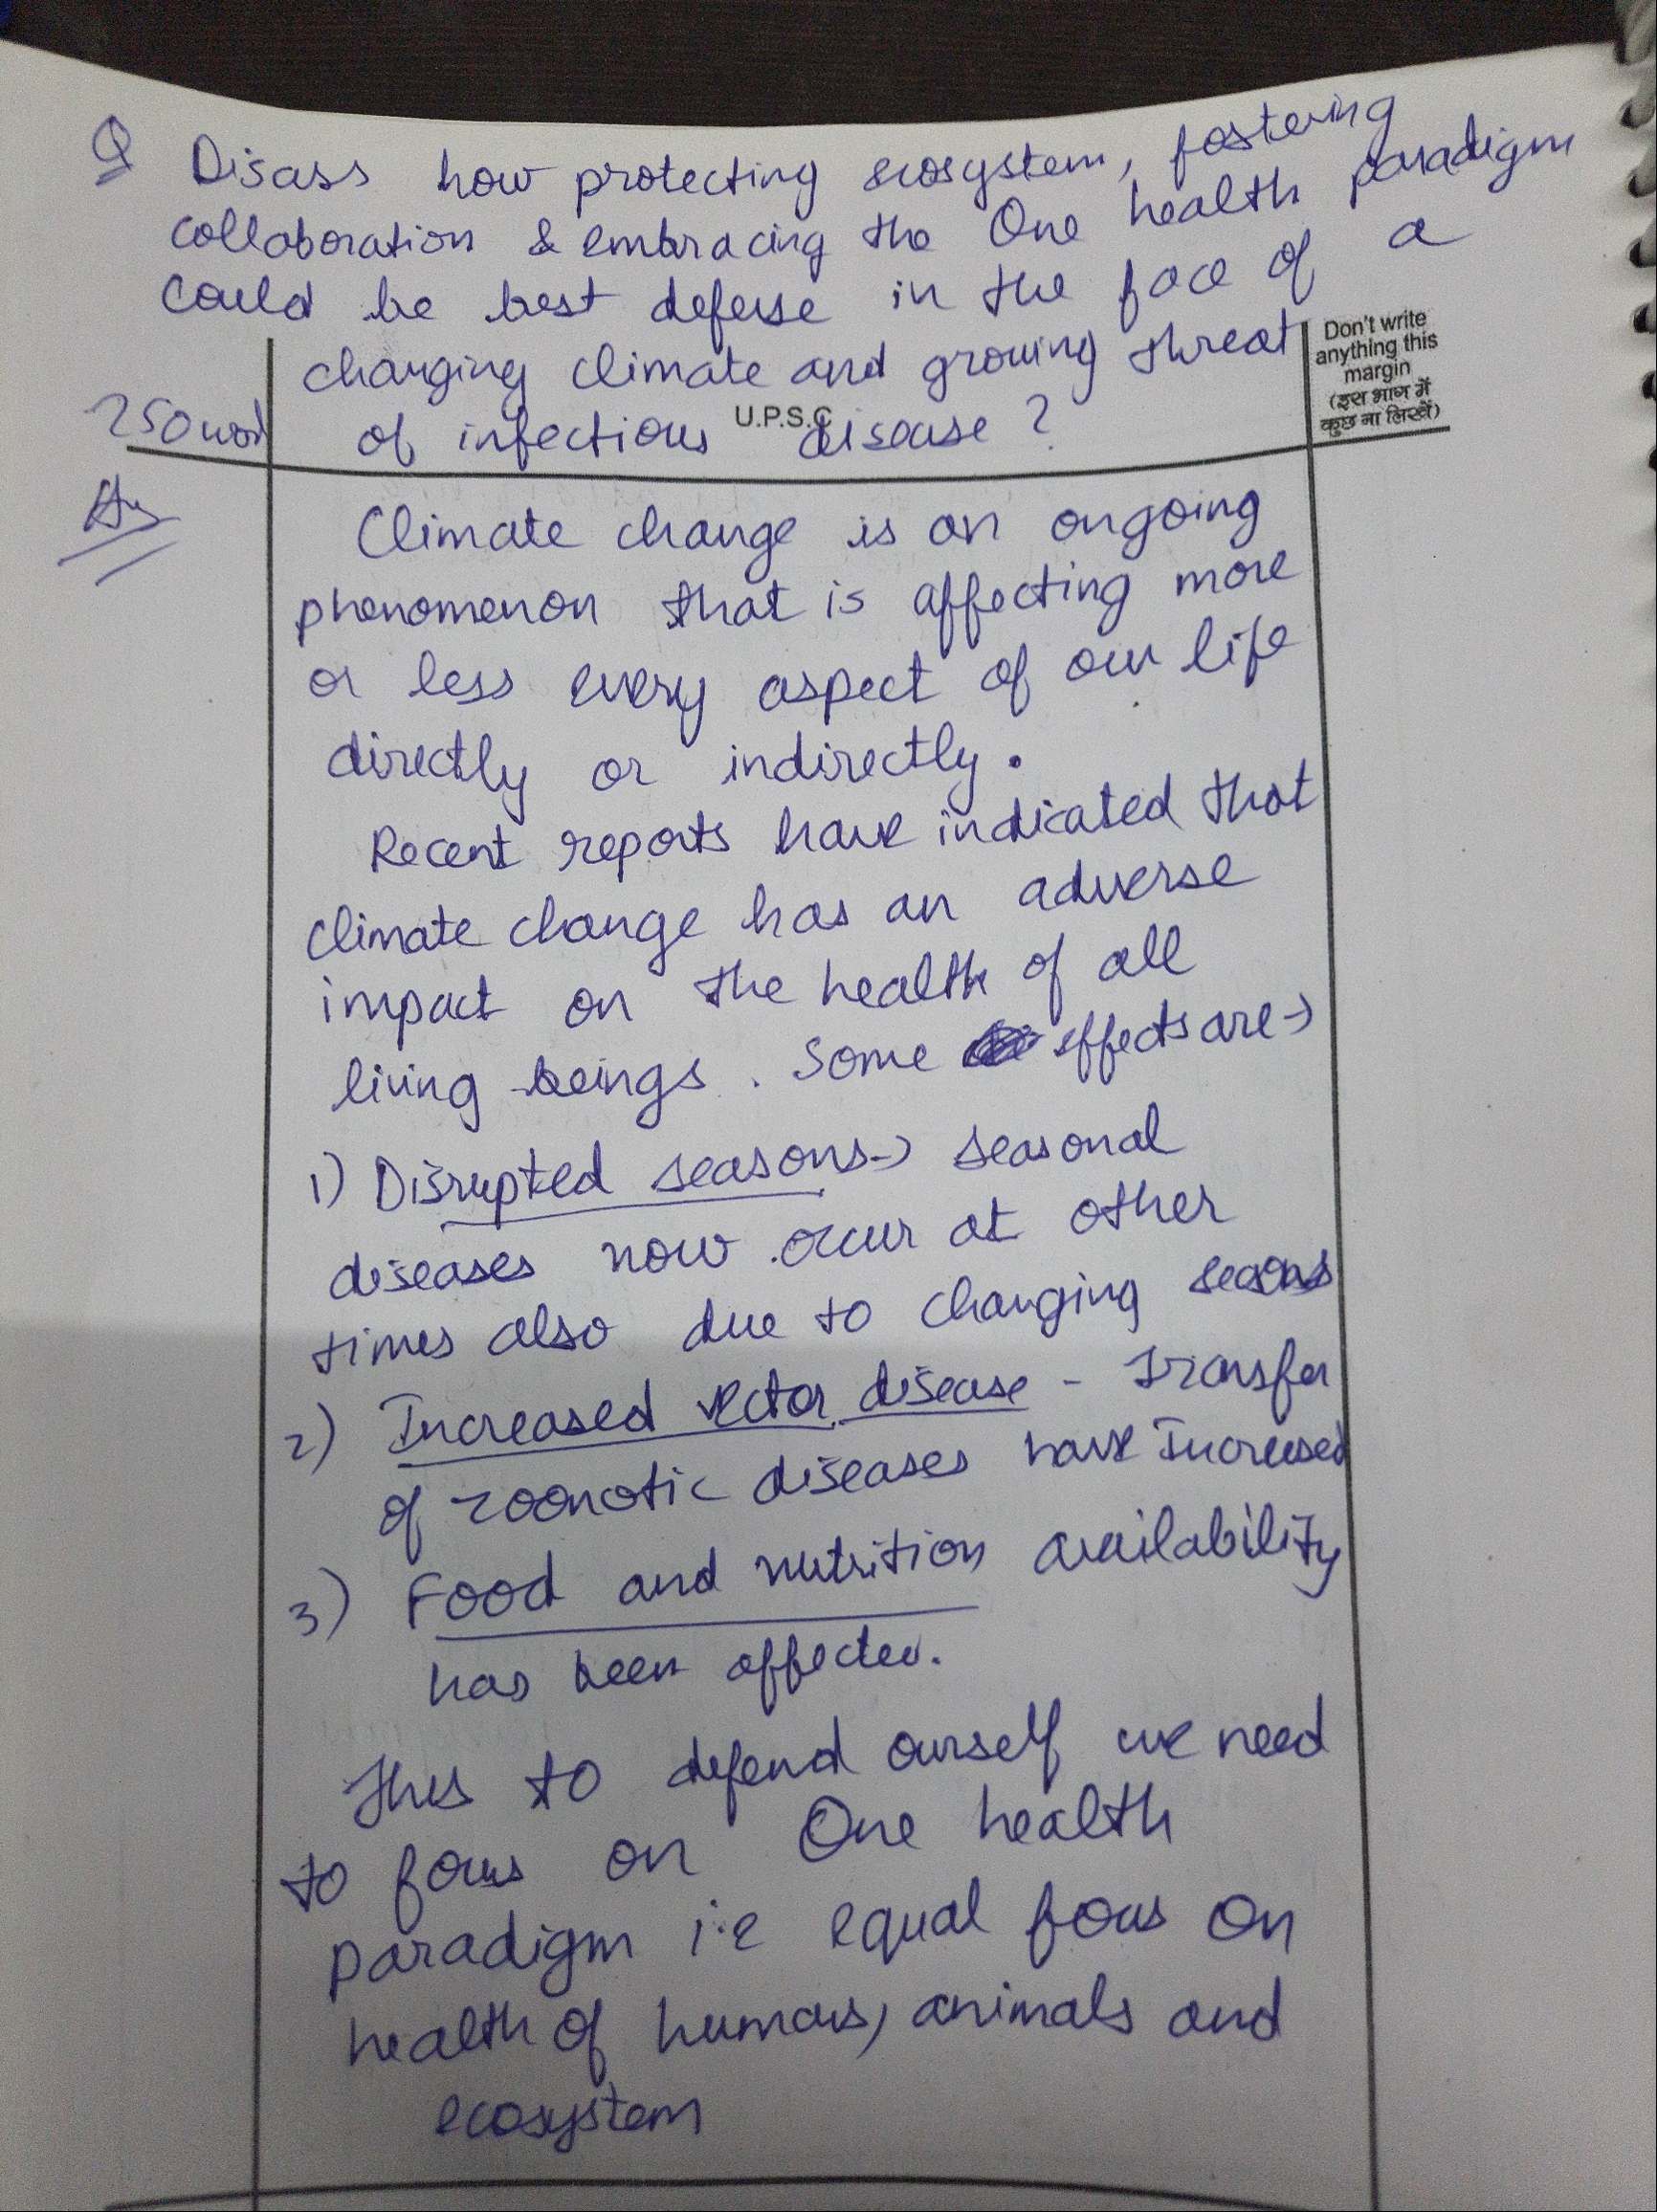 Q Disass how protecting ecosystem, fostering
collaboration & embracing the One health paradigm
Could be best defense in the face of a
changing climate and growing threat
250 word of infectious disease ?
U.P.S.C
Don't write
anything this
margin
(इस भाग में
कुछ ना लिखें)
Ans
Climate change is an ongoing
phenomenon that is affecting more
or less every aspect of our life
directly or indirectly.
Recent reports have indicated that
climate change has an adverse
impact on the health of all
living beings. Some effects are→
1) Disrupted seasons→ seasonal
diseases now occur at other
times also due to changing seasons
2) Increased vector disease - transfer
of zoonotic diseases have Increased
3) Food and nutrition availability
has been affected.
Thus to defend ourself we need
to focus on One health
paradigm i.e equal focus on
health of humans, animals and
ecosystem